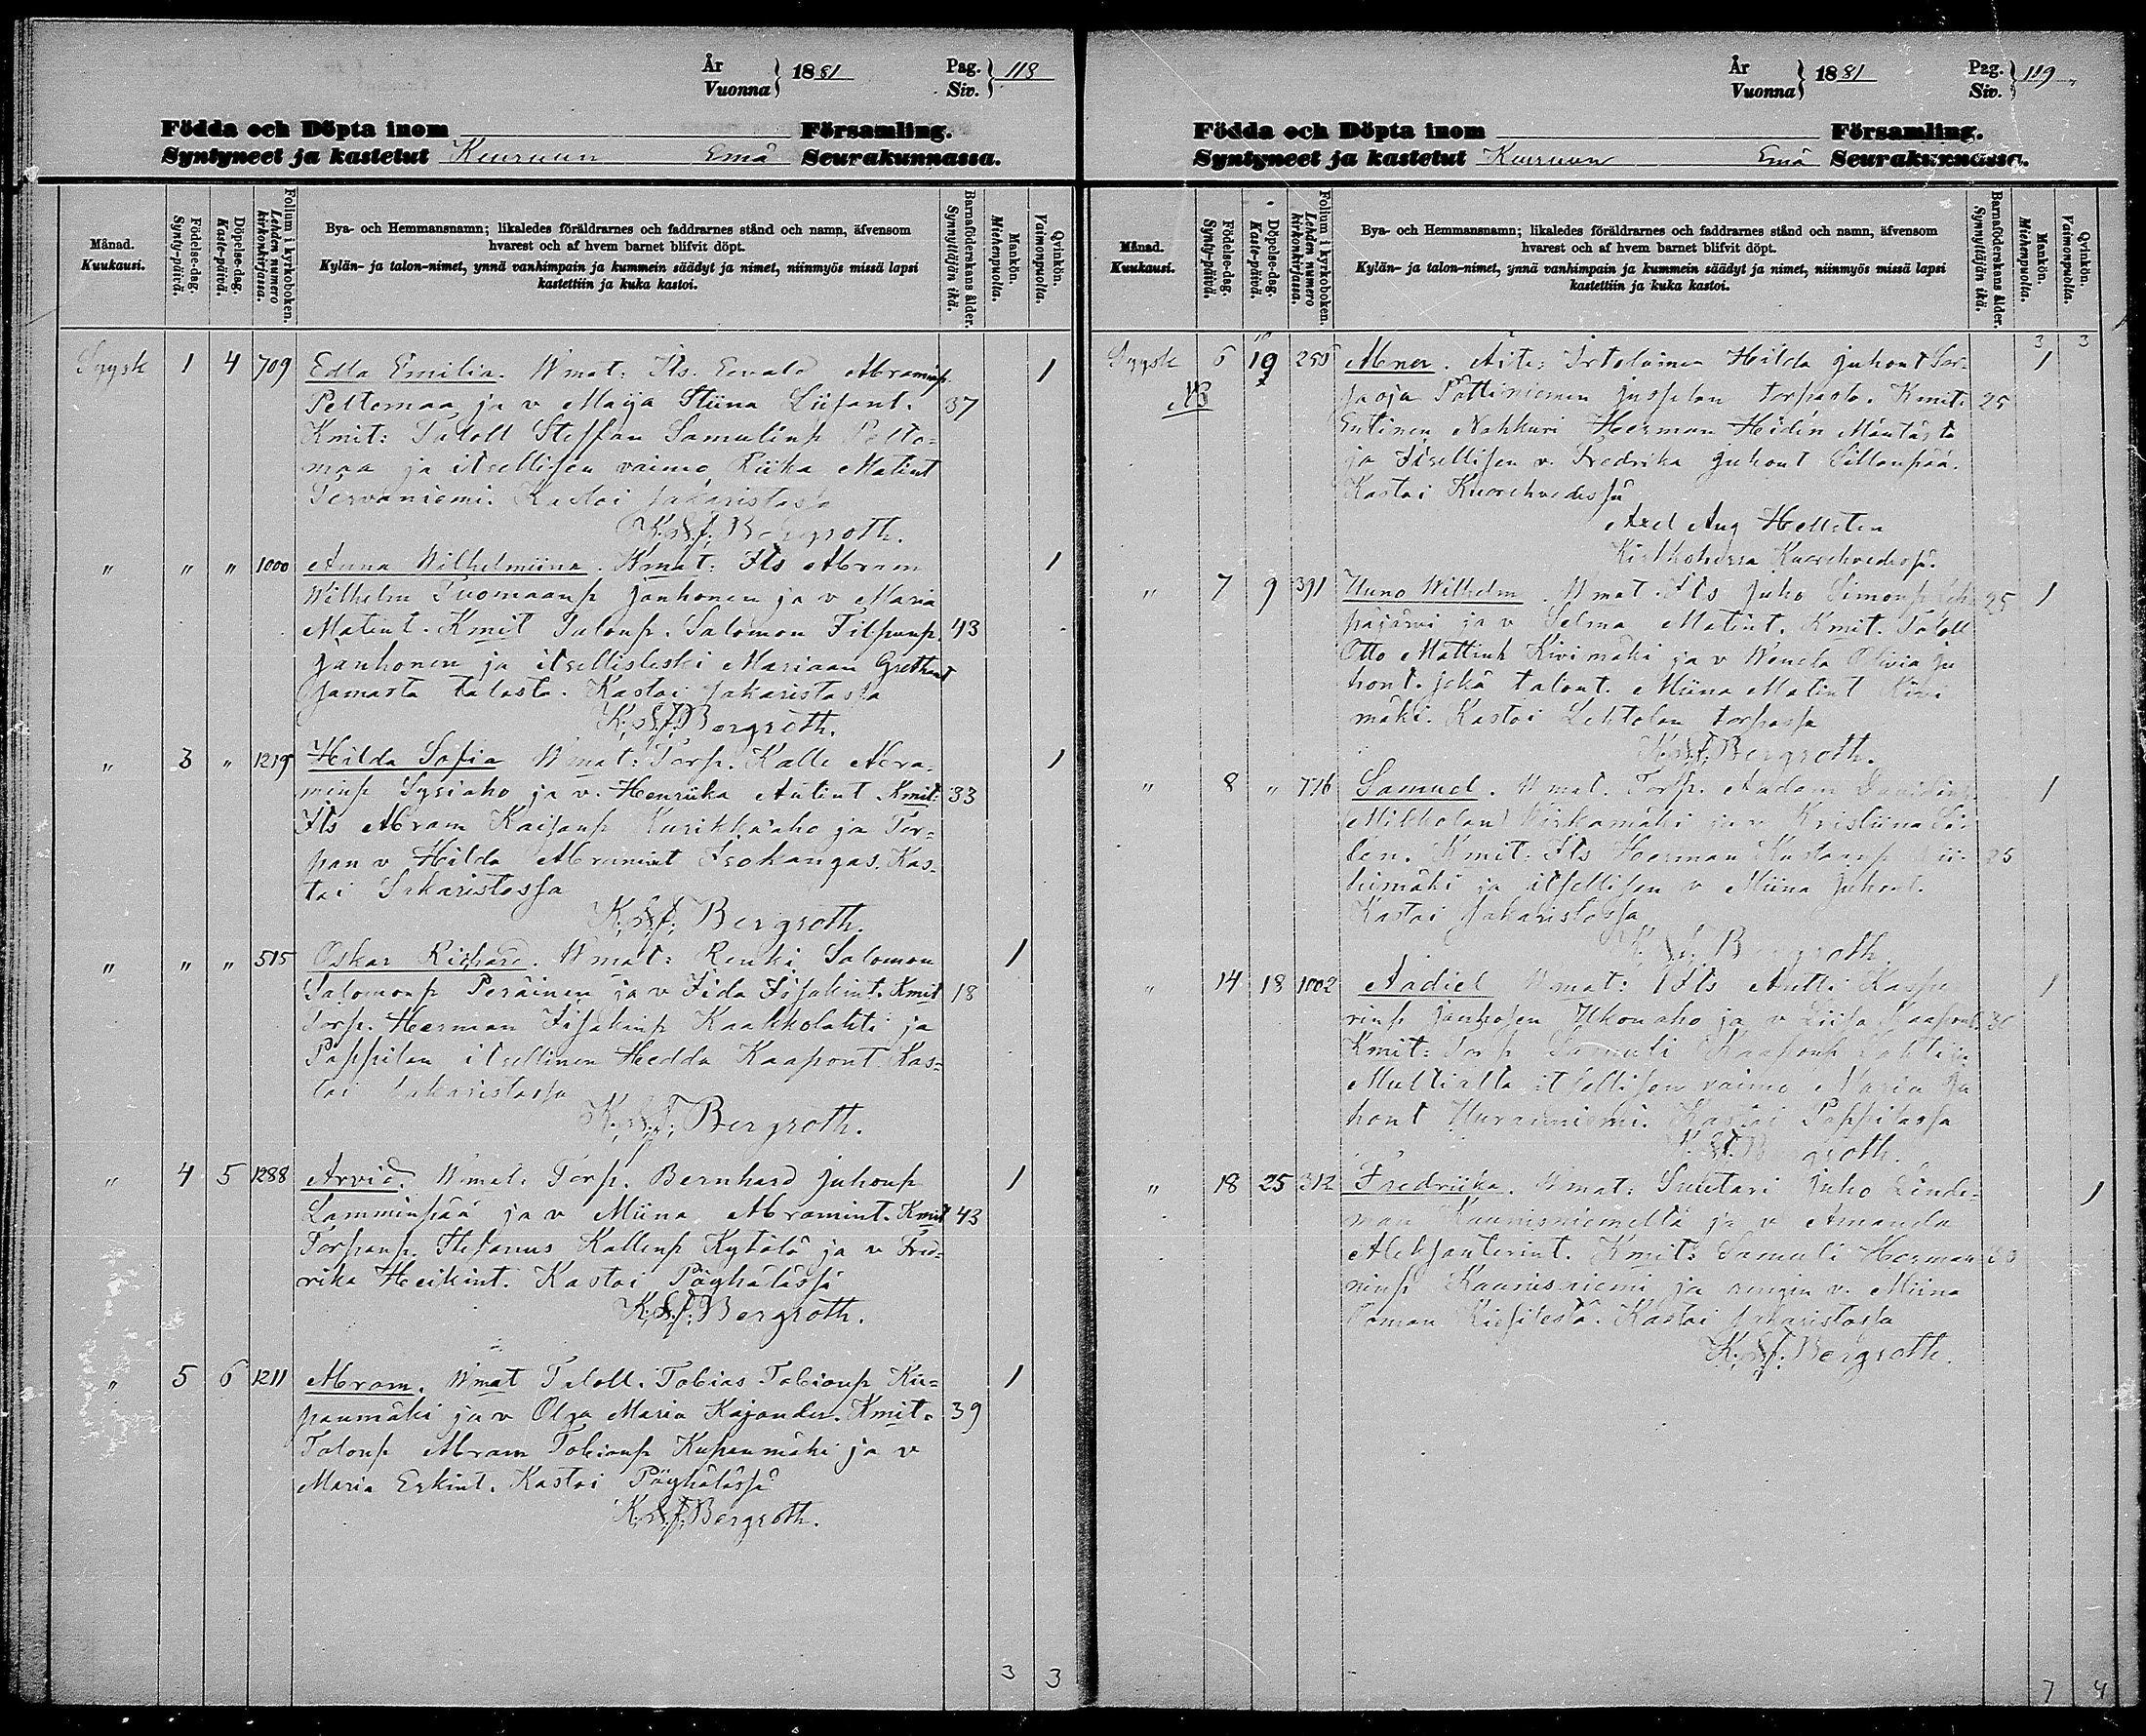 År
Vuonna } 1881 Pag.
Siv. } 118
Födda och Döpta inom Församling.
Syntyneet ja kastetut Keuruun Emä Seurakunnassa.
Månad.
Kuukausi.
Födelse-dag.
Synty-päivä.
Döpelse-dag.
Kaste-päivä.
Folium i kyrkoboken.
Lehden numero kirkonkirjassa.
Bya- och Hemmansnamn; likaledes föräldrarnes och faddrarnes stånd och namn, äfvensom
hvarest och af hvem barnet blifvit döpt.
Kylän- ja talon-nimet, ynnä vanhimpain ja kummein säädyt ja nimet, niinmyös missä lapsi
kastettiin ja kuka kastoi.
Barnaföderskans ålder.
Synnyttäjän ikä.
Mankön.
Miehenpuolta.
Qvinkön.
Vaimonpuolta.
Syysk 1 4 709 Edla Emilia. Wmat: Its. Eevald Abraminp. 1
Peltomaa ja v Maija Stiina Liisant. 37
Kmit: Taloll Steffan Samulinp Pelto-
maa ja itsellisen vaimo Riika Matint
Tervaniemi. Kastoi Sakaristossa
K. F. Bergroth.
" " " 1000 Anna Wilhelmiina. Wmat: Its Abram 1
Wilhelm Tuomaanp Janhonen ja v Maria
Matint. Kmit Talonp. Salomon Filpunp. 43
Janhonen ja itsellisleski Mariaan Grethant
Samasta talosta. Kastoi Sakaristossa
K. F. Bergroth.
" 3 " 1219 Hilda Sofia Wmat: Torp. Kalle Abra- 1
minp Sysiaho ja v. Henriika Antint. Kmit: 33
Its Abram Kaisanp Kurikkaaho ja Tor-
pan v Hilda Abramint Isokangas. Kas-
toi Sakaristossa
K. F. Bergroth.
" " " 515 Oskar Richard. Wmat: Renki Salomon 1
Salomonp Peräinen ja v Fida Iisakint. Kmit 18
Torp. Herman Iisakinp Kaakkolahti ja
Pappilan itsellinen Hedda Kaapont. Kas-
toi Sakaristossa
K. F. Bergroth.
" 4 5 1288 Arvid. Wmat: Torp. Bernhard Juhonp 1
Lamminpää ja v Miina Abramint. Kmit 43
Torpanp. Stefanus Kallenp Kytölä ja v Fred-
rika Heikint. Kastoi Pöyhölässä
K. F. Bergroth.
" 5 6 1211 Abram. Wmat Taloll. Tobias Tobianp Ku- 1
panmäki ja v Olga Maria Kajander. Kmit. 39
Talonp Abram Tobianp Kupanmäki ja v
Maria Erkint. Kastoi Pöyhölässä
K. F. Bergroth.
3 3
År
Vuonna } 1881 Pag.
Siv. } 119
Födda och Döpta inom Församling.
Syntyneet ja kastetut Keuruun Emä Seurakunnassa.
Månad.
Kuukausi.
Födelse-dag.
Synty-päivä.
Döpelse-dag.
Kaste-päivä.
Folium i kyrkoboken.
Lehden numero kirkonkirjassa.
Bya- och Hemmansnamn; likaledes föräldrarnes och faddrarnes stånd och namn, äfvensom
hvarest och af hvem barnet blifvit döpt.
Kylän- ja talon-nimet, ynnä vanhimpain ja kummein säädyt ja nimet, niinmyös missä lapsi
kastettiin ja kuka kastoi.
Barnaföderskans ålder.
Synnyttäjän ikä.
Mankön.
Miehenpuolta.
Qvinkön.
Vaimonpuolta.
3 3
Syysk 6 19 Abner. Äiti: Hilda Juhont 1
NB torpasta. Kmit: 25
Entinen Nahkuri Herman Hidin Mäntästä
ja Itsellisen v. Fredrika Juhont Sillanpää.
Kastoi Kuorehvedessä
Axel Aug Hellsten
Kuorehvedessä.
" 7 9 391 Uuno Wilhelm. Wmat. Its Juho Simonp 25 1
ja v Selma Matint. Kmit. Taloll
Otto Mattink Kivimäki ja v Wendla Olivia Ju
hont. sekä talont. Miina Matint Kivi
mäki. Kastoi Lehtolan torpassa
K. F. Bergroth.
" 8 " 776 Samuel. Wmat. Torp. Aadam Davidinp 1
ja v Kristiina
Kmit: Its Herman
ja itsellisen v Miina Juhont.
Kastoi Sakaristossa
K. F. Bergroth.
" 14 18 1002 Aadiel Wmat: Its Antti Kaspe 1
rinp Janhosen Ukonaho ja v Liisa Kaapont. 30
Kmit: Samuli Kaaponp
Multialta itsellisen vaimo Maria Ju
hont Kastoi Pappilassa
K. F. groth.
" 18 25 312 Fredriika. Wmat: Suutari Juho Linde- 1
man Kaunisniemeltä ja v Amanda
Aleksanterint. Kmit: Samuli Herman
ninp Kaunisniemi ja rengin v. Miina
Kastoi Sakaristossa
K. F. Bergroth.
7 4